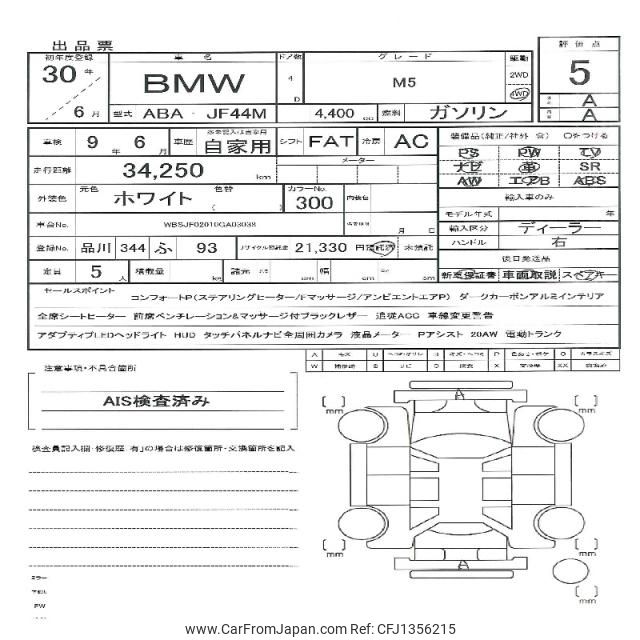 出品票
初年度登録 車 名 ドア数 グレード 駆動 評価点
30 年 BMW 4 D M5 2WD 4WD 5
6 月 型式 ABA - JF44M 4,400 cc 燃料 ガソリン A
A
車検 9 年 6 月 車歴 自家用 シフト FAT 冷房 AC 装備品(純正/社外 含) ○をつける
走行距離 34,250 km メーター PS PW TV
ナビ 革 SR
AW エアB ABS
外装色 元色 ホワイト 色替 カラーNo. 300 内装色 輸入車のみ
モデル年式 年
車台No. WBSJF02010GA03038 月 日 輸入区分 ディーラー
登録No. 品川 344 ふ 93 リサイクル預託金 21,330 円 預託済 未預託 ハンドル 右
定員 5 人 積載量 kg 諸元 cm 幅 cm cm 後日発送品
新車保証書 車両取説 スペアキー
セールスポイント
コンフォートP(ステアリングヒーター/Fマッサージ/アンビエントエアP) ダークカーボンアルミインテリア
全席シートヒーター 前席ベンチレーション&マッサージ付ブラックレザー 追従ACC 車線変更警告
アダプティブLEDヘッドライト HUD タッチパネルナビ全周囲カメラ 液晶メーター Pアシスト 20AW 電動トランク
注意事項・不具合箇所
AIS検査済み
検査員記入欄・修復歴「有」の場合は修復箇所・交換箇所を記入
A
mm mm
mm mm
A
mm
ミラー
PW
www.CarFromJapan.com Ref: CFJ1356215